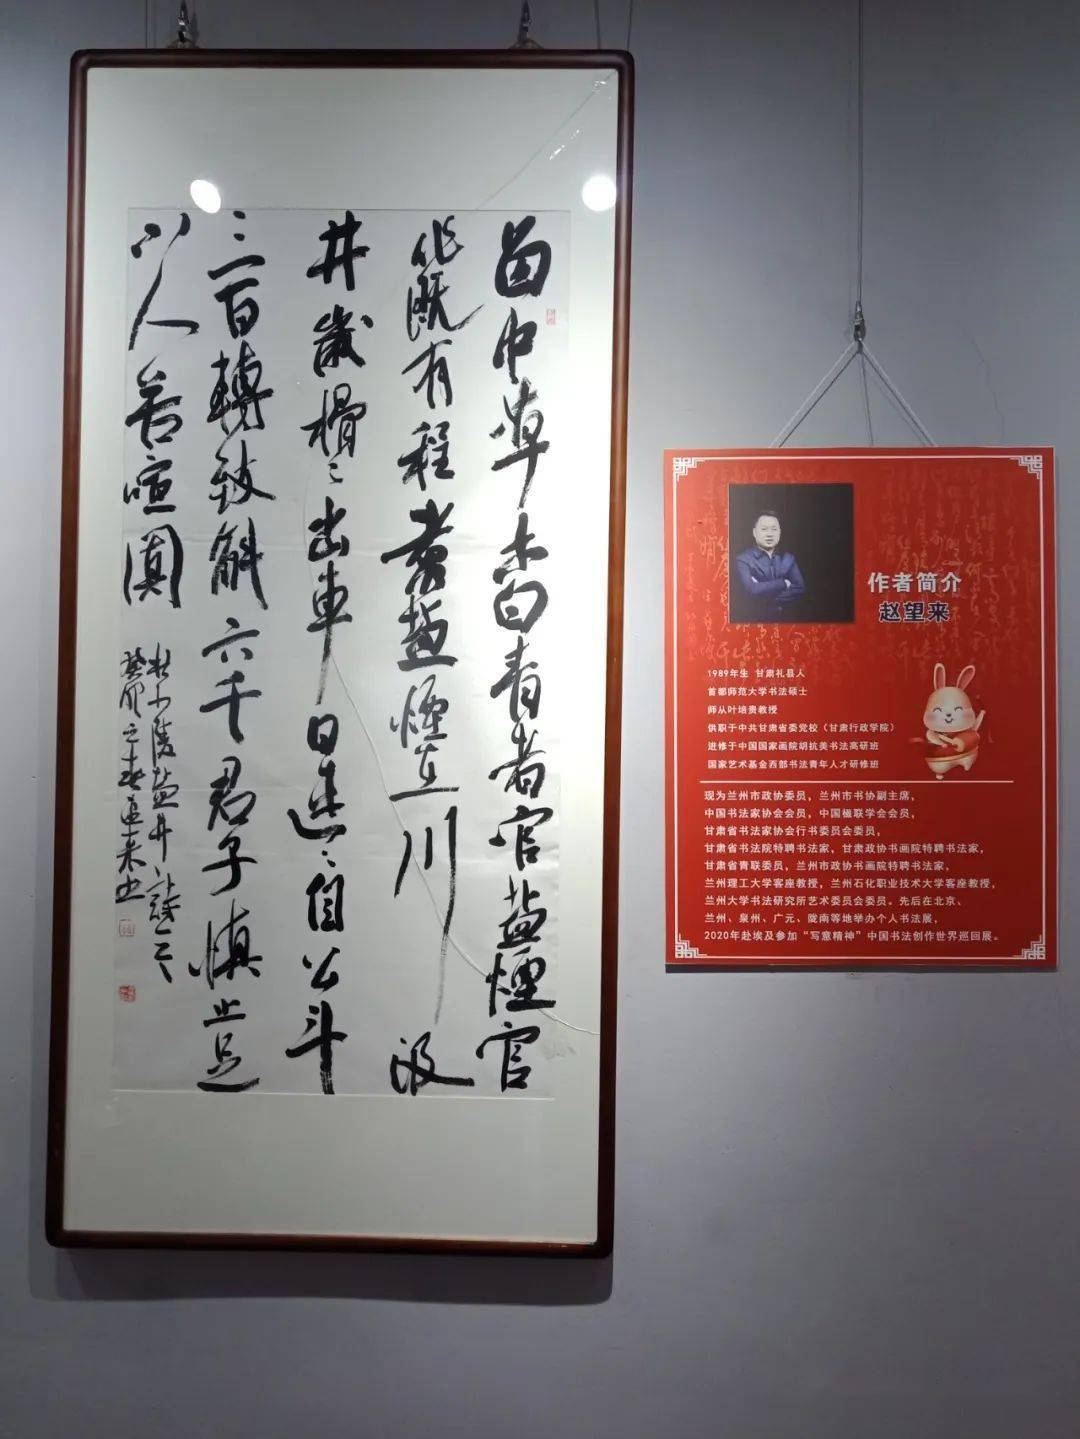 卤中草木白青者官盐煙官
作既有程煮盐煙在川汲
井歲榾〻出車日連〻自公斗
三百轉致斛六千君子慎止足
小人苦喧闐
杜少陵盐井詩
癸卯之春望来书
作者简介
赵望来
1989年生 甘肃礼县人
首都师范大学书法硕士
师从叶培贵教授
供职于中共甘肃省委党校（甘肃行政学院）
进修于中国国家画院胡抗美书法高研班
国家艺术基金西部书法青年人才研修班
现为兰州市政协委员，兰州市书协副主席，
中国书法家协会会员，中国楹联学会会员，
甘肃省书法家协会行书委员会委员，
甘肃省书法院特聘书法家，甘肃政协书画院特聘书法家，
甘肃省青联委员，兰州市政协书画院特聘书法家，
兰州理工大学客座教授，兰州石化职业技术大学客座教授，
兰州大学书法研究所艺术委员会委员。先后在北京、
兰州、泉州、广元、陇南等地举办个人书法展，
2020年赴埃及参加“写意精神”中国书法创作世界巡回展。